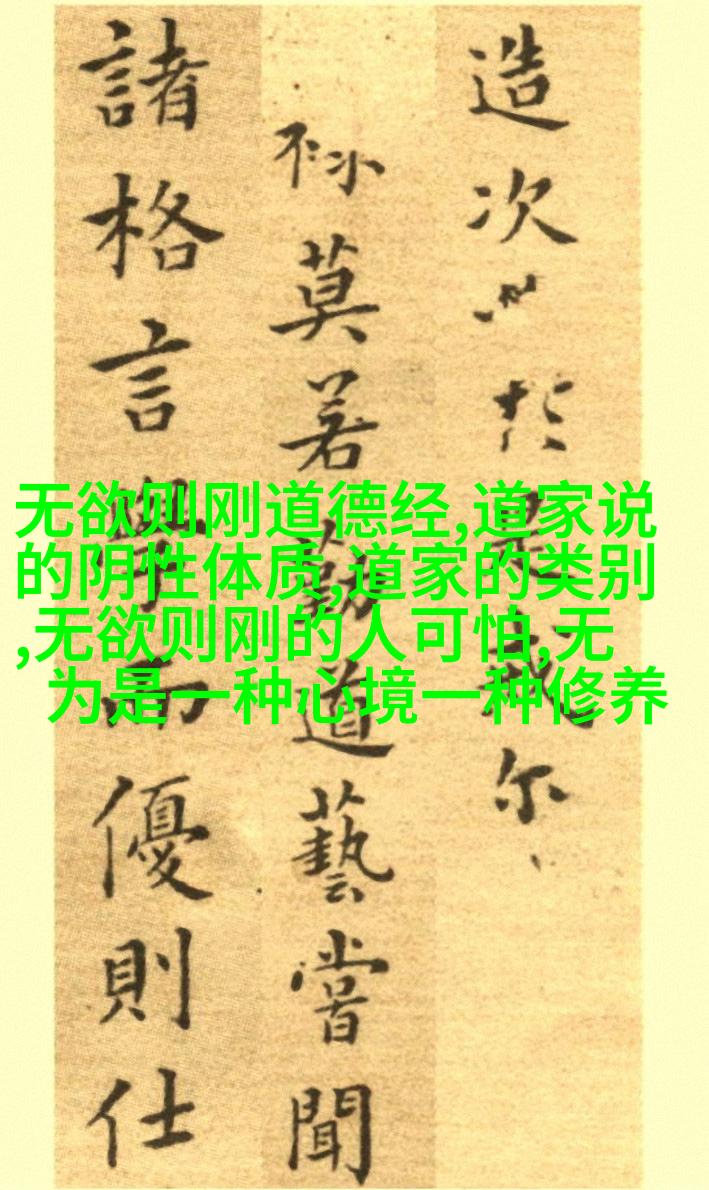 无欲则刚道德经,道家说
的阴性体质,道家的类别
,无欲则刚的人可怕,无
为是一种心境一种修养
造次於是尔
莫若勤道藝嘗聞
諸格言學而優則仕